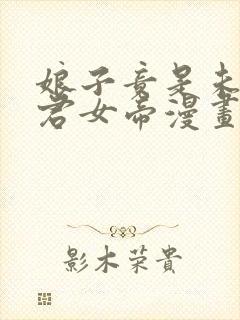 娘子竟是未
君女帝漫畫
影木荣貴